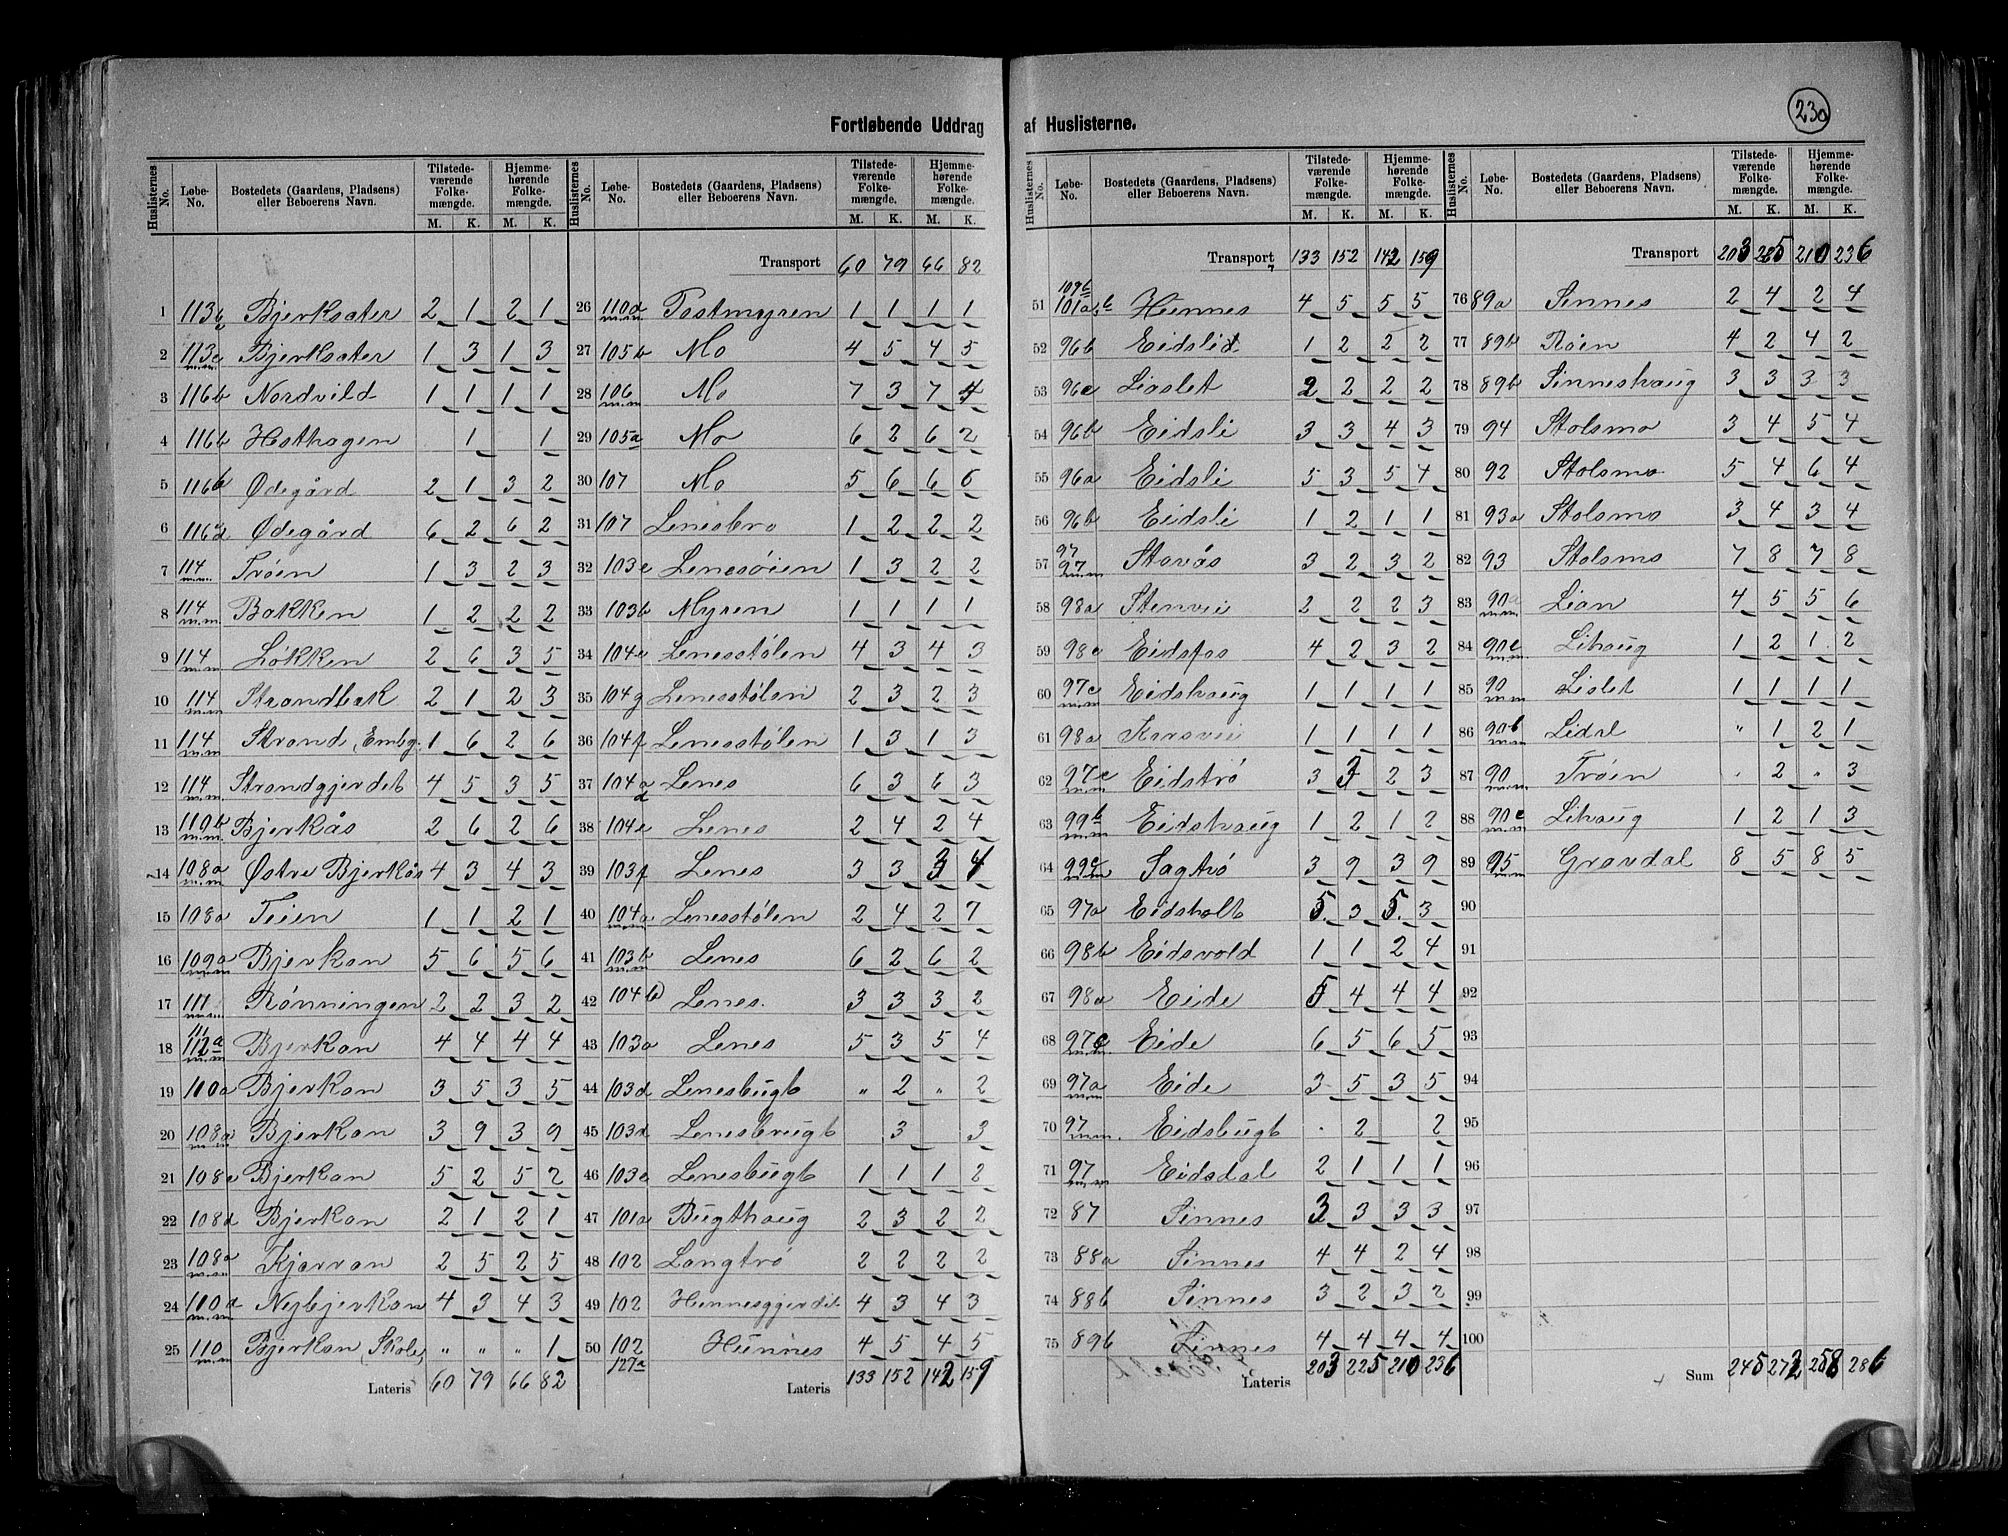 230
Fortløbende Uddrag af Huslisterne.
Huslisternes No. Løbe-No. Bostedets (Gaardens, Pladsens) eller Beboerens Navn. Tilstedeværende Folkemængde. M. K. Hjemmehørende Folkemængde. M. K.
1 113b Bjerksæter 2 1 2 1
2 113c m.m. Bjerksæter 1 3 1 3
3 116b Nordvild 1 1 1 1
4 116b Hesthagen 1 1
5 116b Ødegård 2 1 3 2
6 116d Ødegård 6 2 6 2
7 114 m.m. Trøen 1 3 2 3
8 114 m.m. Bakken 1 2 2 2
9 114 m.m Løkken 2 6 3 5
10 114 m.m Strandbak 2 1 2 3
11 114 m.m Strand, Embg. 1 6 2 6
12 114 m.m. Strandgjerdet 4 5 3 5
13 110b m.m. Bjerkås 2 6 2 6
14 108a m.m Østre Bjerkås 4 3 4 3
15 108a Teien 1 1 2 1
16 109a m.m Bjerkan 5 6 5 6
17 111 m.m. Rønningen 2 2 3 2
18 111 112a m.m Bjerkan 4 4 4 4
19 110a Bjerkan 3 5 3 5
20 108a m.m Bjerkan 3 9 3 9
21 108c Bjerkan 5 2 5 2
22 108d Bjerkan 2 1 2 1
23 108a m.m. Kjærran 2 5 2 5
24 110d m.m Nejbjerkan 4 3 4 3
25 110 m.m Bjerkan (Skole) " " " 1
Lateris 60 79 66 82
Huslisternes No. Løbe-No. Bostedets (Gaardens, Pladsens) eller Beboerens Navn. Tilstedeværende Folkemængde. M. K. Hjemmehørende Folkemængde. M. K.
Transport 60 79 66 82
26 110d m.m Tostmyren 1 1 1 1
27 105b Mo 4 5 4 5
28 106 m.m. Mo 7 3 7 4
29 105a Mo 6 2 6 2
30 107 Mo 5 6 6 6
31 107 Lenesbro 1 2 2 2
32 103c Lenesøien 1 3 2 2
33 103b Myren 1 1 1 1
34 104c Lenesstølen 4 3 4 3
35 104g Lenesstølen 2 3 2 3
36 104f Lenesstølen 1 3 1 3
37 104a d Lenes 6 3 6 3
38 104e Lenes 2 4 2 4
39 103f Lenes 3 3 3 4
40 104a m.m Lenesstølen 2 4 2 7
41 103b m.m Lenes 6 2 6 2
42 104b Lenes. 3 3 3 2
43 103a Lenes 5 3 5 4
44 103d Lenesbugt " 2 " 2
45 103d Lenesbrugt 3 3
46 103a Lenesbugt 1 1 1 2
47 101a Bugthaug 2 3 2 2
48 102 Langtrø 2 2 2 2
49 102 Hennesgjerdet 4 3 4 3
50 102 127a Hünnes 4 5 4 5
Lateris 133 152 142 159
Huslisternes No. Løbe-No. Bostedets (Gaardens, Pladsens) eller Beboerens Navn. Tilstedeværende Folkemængde. M. K. Hjemmehørende Folkemængde. M. K.
Transport 133 152 142 159
51 109b 101a,b Hünnes 4 5 5 5
52 96b Eidslid 1 2 2 2
53 96c Liaslet 2 2 2 2
54 96b Eidsli 3 3 4 3
55 96a Eidsli 5 3 5 4
56 96b Eidsli 1 2 1 1
57 97 97 m.m Stavås 3 2 3 2
58 98a Stenvei 2 2 2 3
59 98c Eidsfos 4 2 3 2
60 97c m.m Eidshaug 1 1 1 1
61 98a Korsvei 1 1 1 1
62 97c m.m Eidstrø 3 3 2 3
63 99b m.m Eidshaug 1 2 1 2
64 99c m.m Sagtrø 3 9 3 9
65 97a Eidsholt 5 3 5 3
66 98b Eidsvold 1 1 2 4
67 98a Eide 5 4 4 4
68 97c m.m. Eide 6 5 6 5
69 97a m.m Eide 3 5 3 5
70 97 m.m. Eidsbugt . 2 2
71 97 m.m Eidsdal 2 1 1 1
72 87 Sinnes 3 3 3 3
73 88a Sinnes 4 4 2 4
74 88b Sinnes 3 2 3 2
75 89b Sinnes 4 4 4 4
Lateris 203 225 210 236
Huslisternes No. Løbe-No. Bostedets (Gaardens, Pladsens) eller Beboerens Navn. Tilstedeværende Folkemængde. M. K. Hjemmehørende Folkemængde. M. K.
Transport 203 225 210 236
76 89a Sinnes 2 4 2 4
77 89b Røen 4 2 4 2
78 89b Sinneshaug 3 3 3 3
79 94 Stolsmo 3 4 5 4
80 92 Stolsmo 5 4 6 4
81 93a Stolsmo 3 4 3 4
82 93 Stolsmo 7 8 7 8
83 90a m.m Lian 4 5 5 6
84 90c m.m. Lihaug 1 2 1 2
85 90 m.m Lislet 1 1 1 1
86 90b m.m Lidal " 1 2 1
87 90 m.m Trøen " 2 " 3
88 90c m.m Lihaug 1 2 1 3
89 95 m.m Gravdal 8 5 8 5
90
91
92
93
94
95
96
97
98
99
100
Sum 245 272 258 286